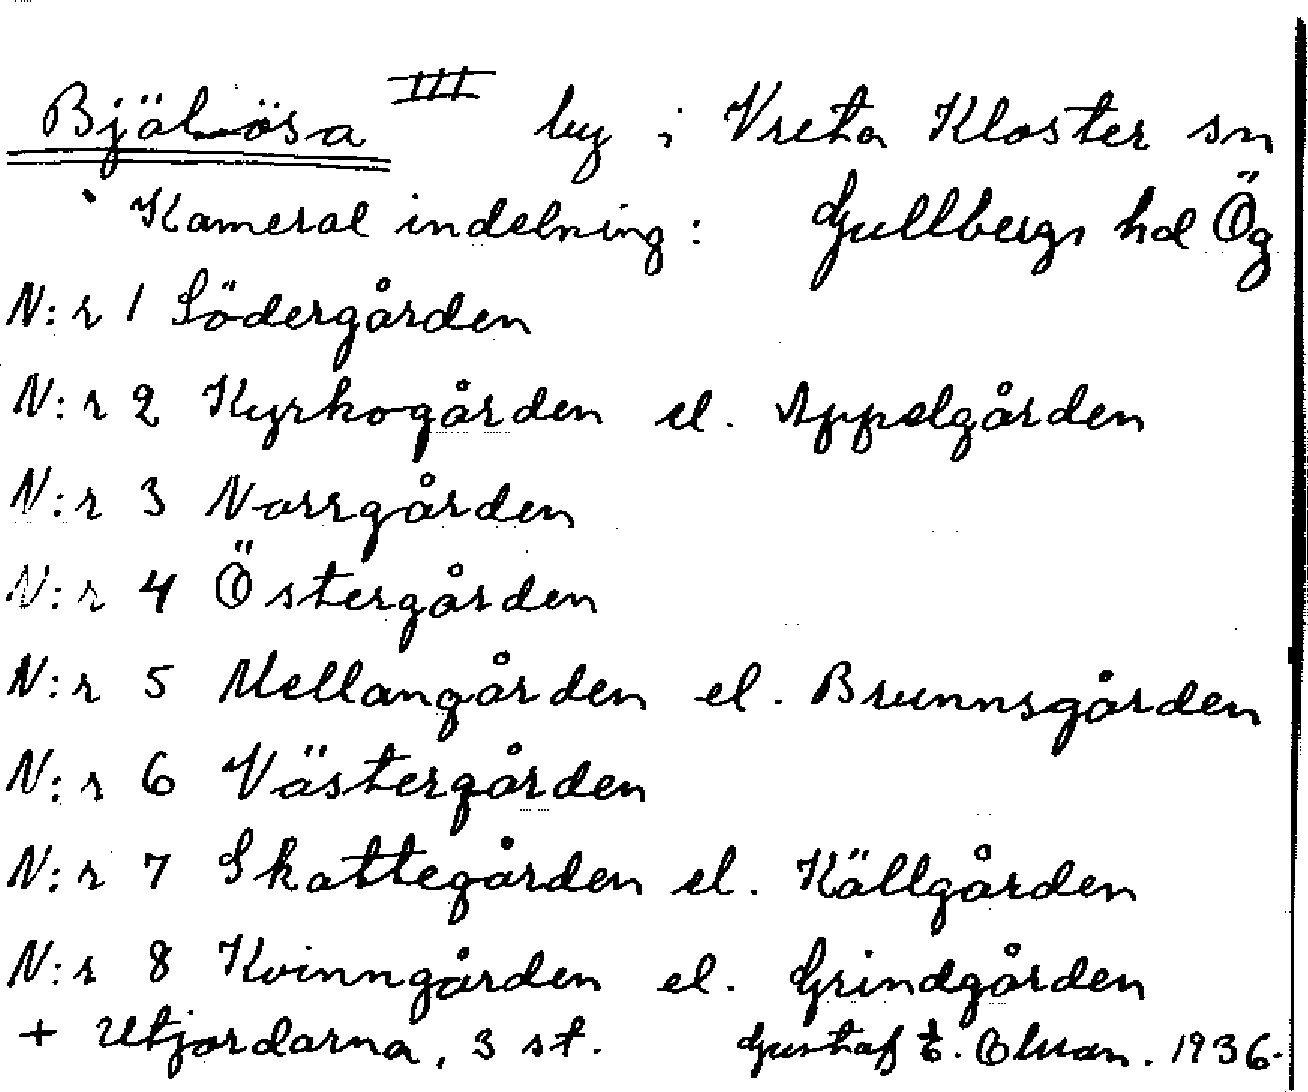 Bjälösa III by i Vreta Kloster sn
Kameral indelning: Gullbergs hd Ög
N:r 1 Södergården
N:r 2 Kyrkogården el. Appelgården
N:r 3 Norrgården
N:r 4 Östergården
N:r 5 Mellangården el. Brunnsgården
N:r 6 Västergården
N:r 7 Skattegården el. Källgården
N:r 8 Kvinngården el. Grindgården
+ Utjordarna, 3 st. Gustaf 1936.